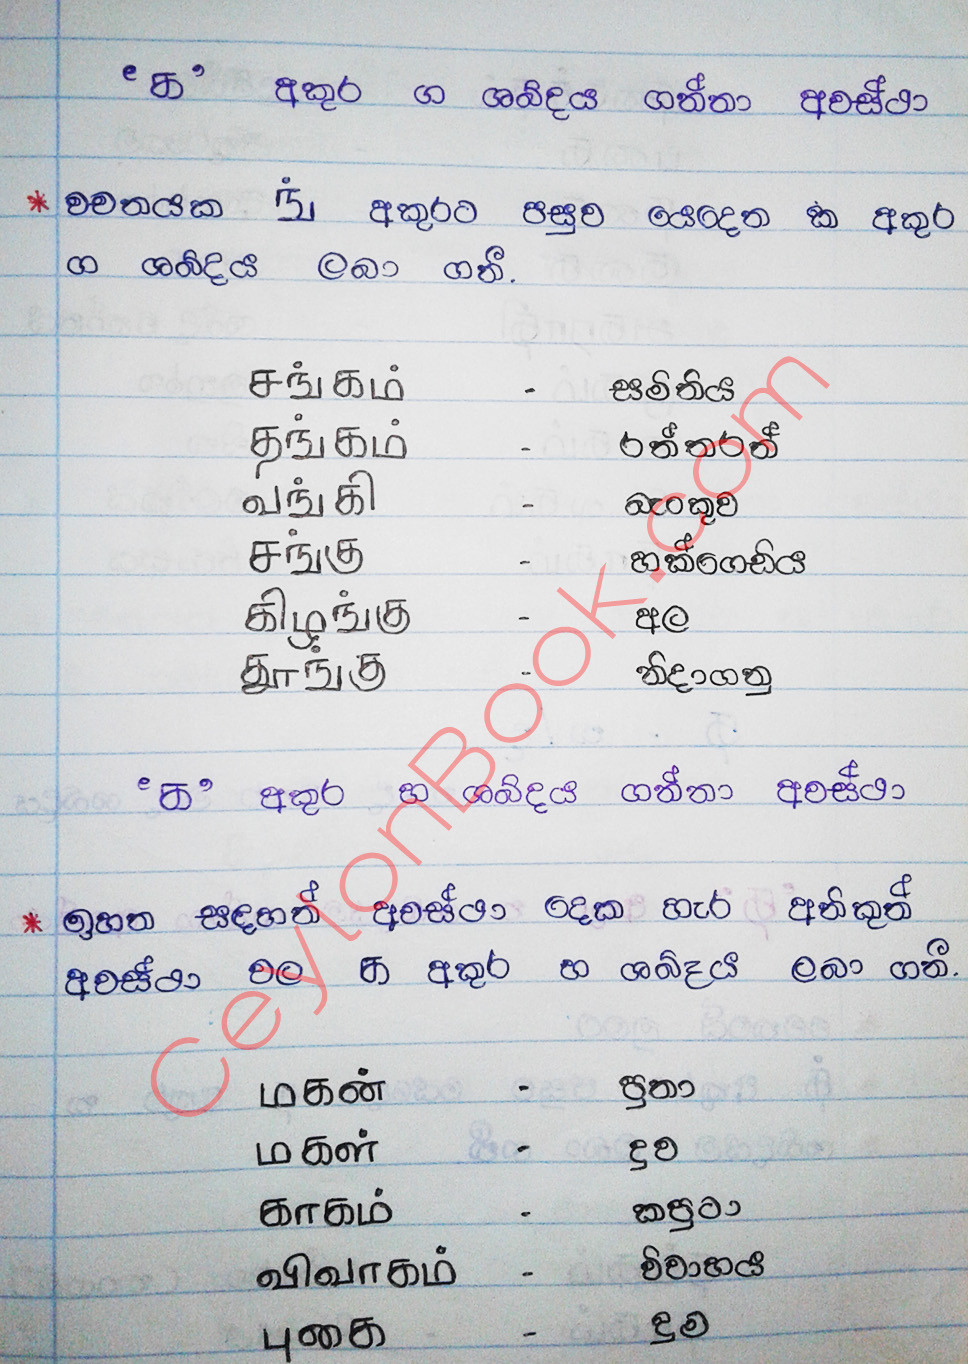 'க' අකුර ග ශබ්දය ගත්තා අවස්ථා
* වචනයක ங் අකුරට පසුව යෙදෙන க අකුර
ග ශබ්දය ලබා ගනී.
சங்கம் - සමිතිය
தங்கம் - රත්තරන්
வங்கி - බැංකුව
சங்கு - හක්ගෙඩිය
கிழங்கு - අල
தூங்கு - නිදාගනු
'க' අකුර හ ශබ්දය ගත්තා අවස්ථා
* ඉහත සඳහන් අවස්ථා දෙක හැර අනිකුත්
අවස්ථා වල க අකුර හ ශබ්දය ලබා ගනී.
மகன் - පුතා
மகள் - දුව
காகம் - කපුටා
விவாகம் - විවාහය
புகை - දුම
CeylonBook.com